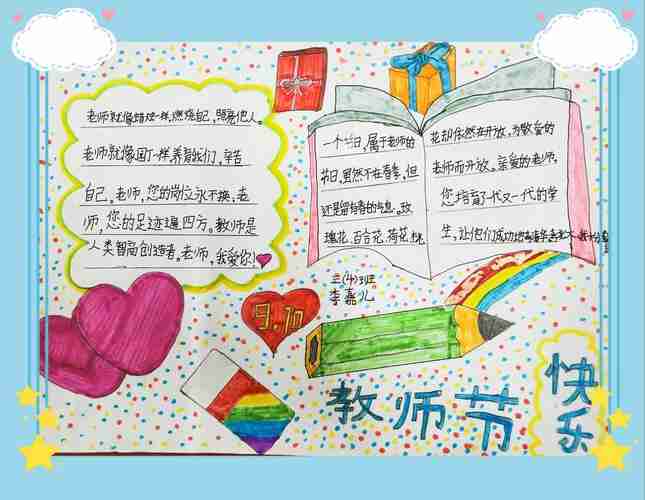 老师就像蜡烛一样,燃烧自己,照亮他人。
老师就像园丁一样养育我们,辛苦
自己。老师,您的岗位永不换,老
师,您的足迹遍四方。教师是
人类智高创造者。老师,我爱你!
一个节日,属于老师的
节日,虽然不在春季,但
还是留有春的气息。玫
瑰花、百合花、荷花、桃
花却依然在开放,为敬爱的
老师而开放。亲爱的老师,
您培育了一代又一代的学
生,让他们成功
三(4)班
李嘉儿
9.10
教师节
快乐